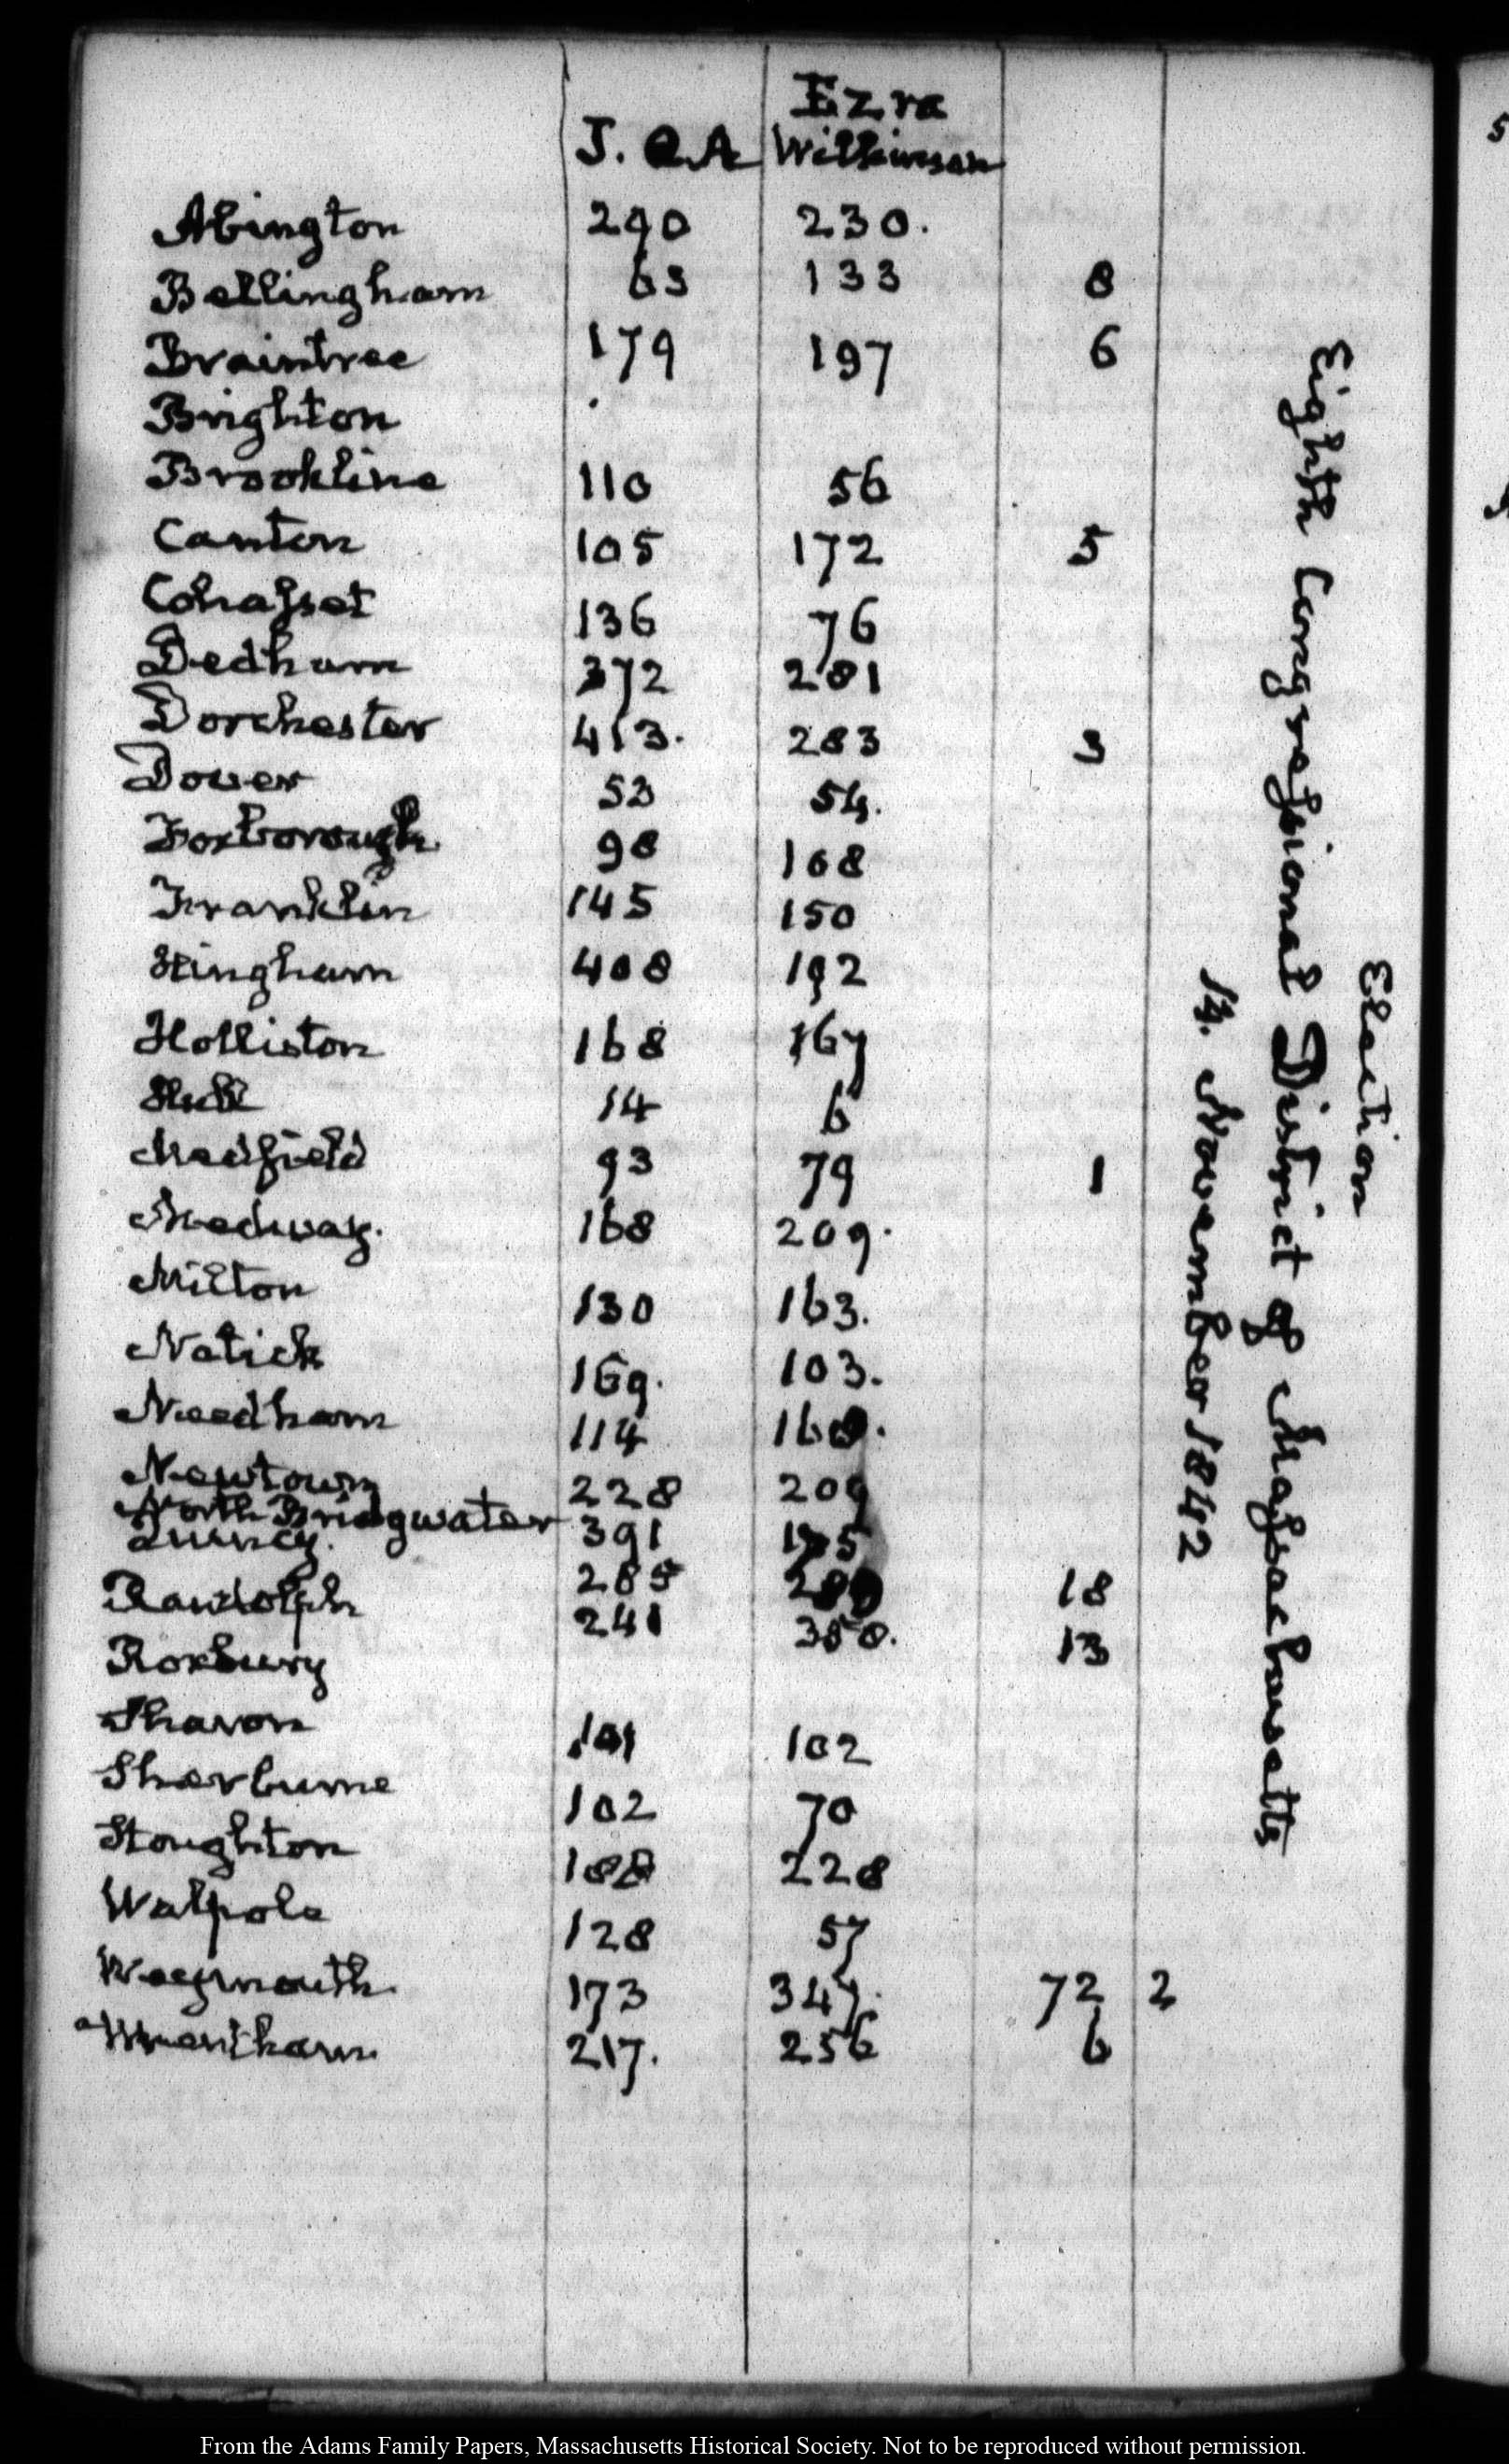 Ezra
J. Q A Wilkinson
Abington 290 230.
Bellingham 63 133 8
Braintree 179 197 6
Brighton
Brookline 110 56
Canton 105 172 5
Cohasset 136 76
Dedham 372 281
Dorchester 413. 283 3
Dover 53 54.
Foxborough 98 108
Franklin 145 150
Hingham 408 192
Holliston 168 167
Hull 14 6
Medfield 93 79 1
Medway. 168 209.
Milton 130 163.
Natick 169. 103.
Needham 114
Newtown 228 209
North Bridgwater 391
Quincy. 285 18
Randolph 241 358. 13
Roxbury
Sharon 101 102
Sherburne 102 70
Stoughton 188 228
Walpole 128 57
Weymouth. 173 347. 72 2
Wrentham. 217. 256 6
Election
Eighth Congressional District of Massachusetts
14. November 1842
From the Adams Family Papers, Massachusetts Historical Society. Not to be reproduced without permission.